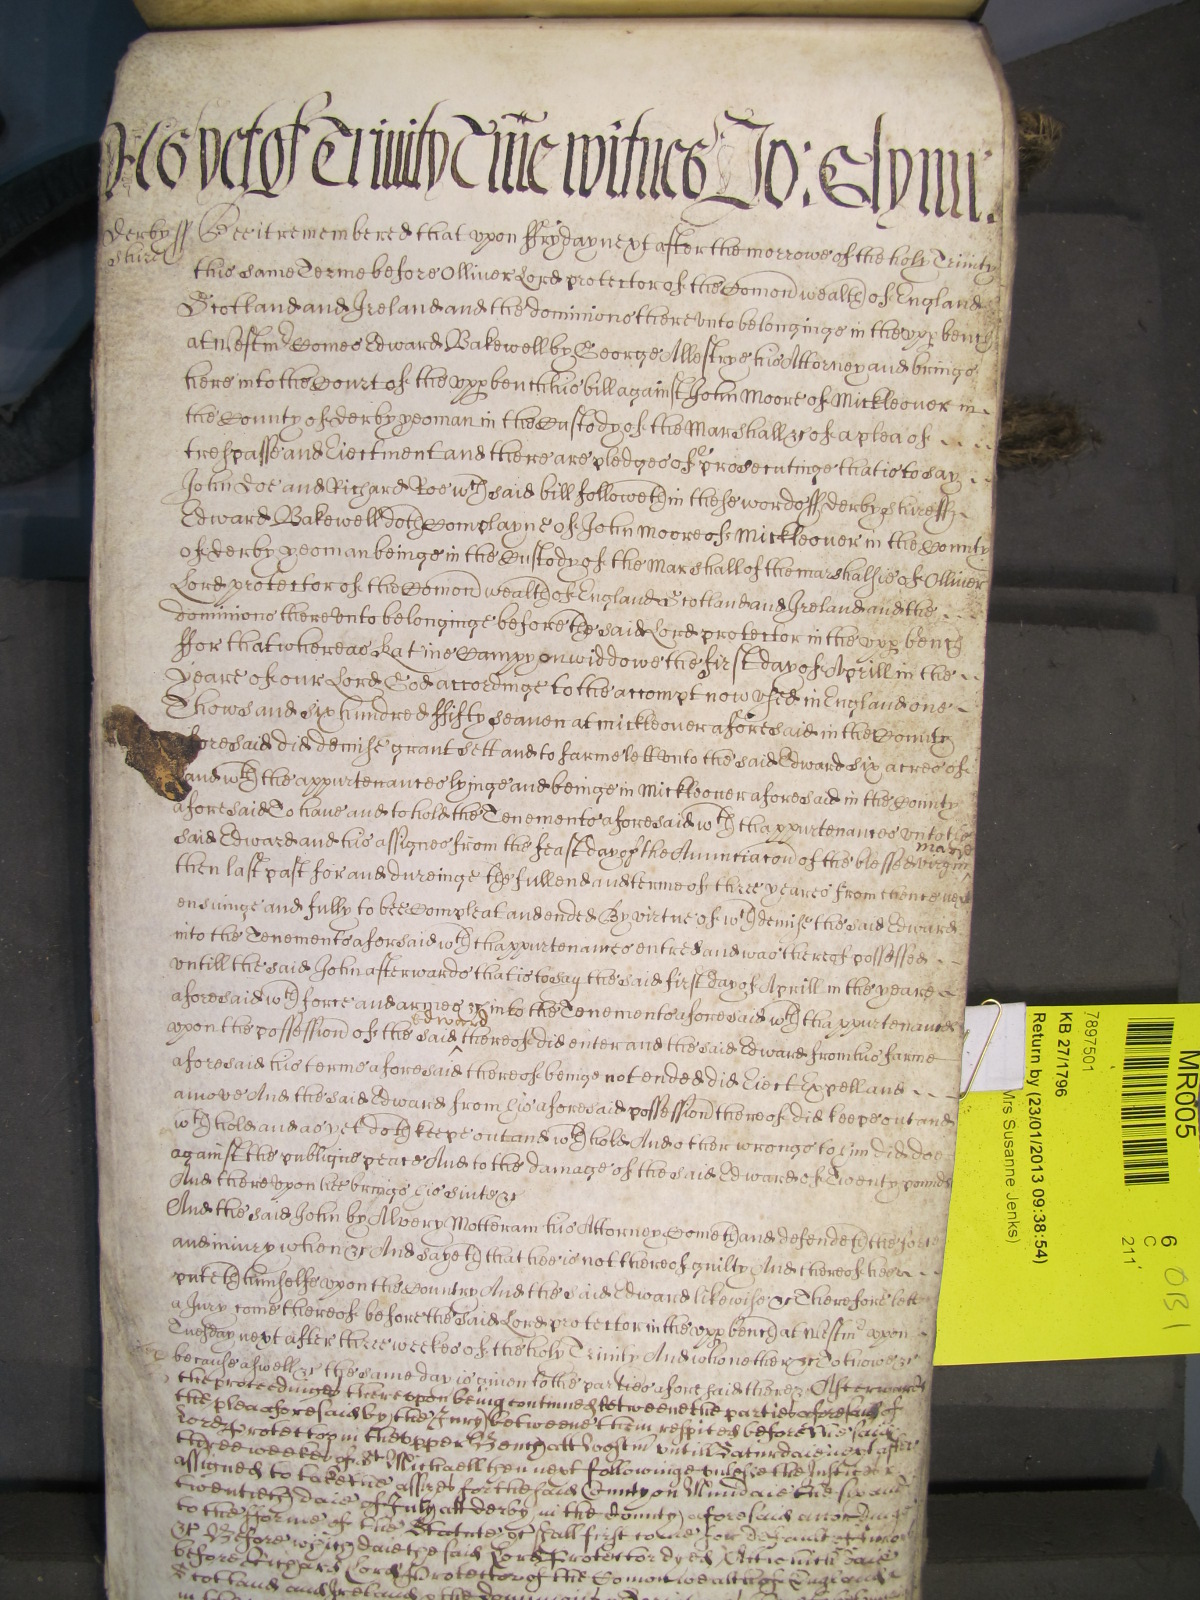 yet of Trinity Tme witnes Jo: Glynn.
Derby ss Bee it remembered that vpon ffryday next after the morrowe of the holy Trinity
shire
this same Terme before Olliver Lord protector of the Comon wealth of England
Scotland and Ireland and the dominions there vnto belonginge in the vpp bench
at Westmr Comes Edward Bakewell by George Allestrye his Attorney and brings
here into the Court of the vpp bench his bill against John Moore of Mickleover in
the County of derby yeoman in the Custody of the Marshall &c of a plea of
trespasse and Eiectment and there are pledges of prosecutinge that is to say
John Doe and Richard Roe wch said bill followeth in these words ss derbyshire ss
Edward Bakewell doth Complayne of John Moore of Mickleover in the County
of derby yeoman beinge in the Custody of the Marshall of the marshalsie of Olliver
Lord protector of the Comon wealth of England Scotland and Ireland and the
dominions there vnto belonginge before the said Lord protector in the vpp bench
ffor that whereas Katine Campyon widdowe the first day of Aprill in the
yeare of our Lord God accordinge to the accompt now vsed in England one
Thowsand six hundred ffifty seaven at mickleover aforesaid in the County
aforesaid did demise grant sett and to farme lett vnto the said Edward six acres of
land wth the appurtenances lyinge and beinge in Mickleover aforesaid in the County
aforesaid To have and to hold the Tenements aforesaid wth thappurtenances vnto the
said Edward and his assignes from the feast day of the Anunciacon of the blessed virgin
mary
then last past for and dureinge the full end and terme of three yeares from thence next
ensuinge and fully to bee Compleat and ended By virtue of wch demise the said Edward
into the Tenements aforsaid wth thappurtenances entred and was thereof possessed
vntill the said John afterwards that is to say the said first day of Aprill in the yeare
aforesaid wth force and armes &c into the Tenements aforesaid wth thappurtenances
Edward
vpon the possession of the said thereof did enter and the said Edward from his farme
aforesaid his terme aforesaid thereof beinge not ended did Eiect Expell and
amove And the said Edward from his aforesaid possession thereof did keepe out and
wth hold and as yet doth keepe out and wth hold And other wrongs to him did doe
against the publique peace And to the damage of the said Edward of Twenty pounds
And there vpon hee brings his suite &c
And the said John by Alvery Motteram his Attorney Cometh and defendeth the force
and iniury when &c And sayeth that hee is not thereof guilty And thereof hee
puteth himselfe vpon the Country And the said Edward likewise &c Therefore lett
a Jury come thereof before the said Lord protector in the vpp bench at Westmr vpon
Tuesday next after three weekes of the holy Trinity And who neither &c to knowe &c
because aswell &c the same day is given to the parties aforesaid there &c Afterwards
the proceedings therevpon being continued betweene the parties aforesaid of
the plea aforesaid by the Jury betweene them respited before the said
Lord Protector in the vpper Bench att Westmr vntill Saturdaie next after
three weekes of St Michaell then next followinge vnlesse the Justices
assigned to take the assizes for the said County on Mundaie the
twentieth daie of July att derby in the County aforesaid accordinge
to the fforme of the Statute &c shall first come for default of
&c Before which daie the said Lord Protector dyed Att which daie
before Richard Lord Protector of the Comonwealth of England
Scotland and Ireland & the dominions
MR005
7897501
KB 27/1796
Return by (23/01/2013 09:38:54)
Mrs Susanne Jenks)
6
C
211